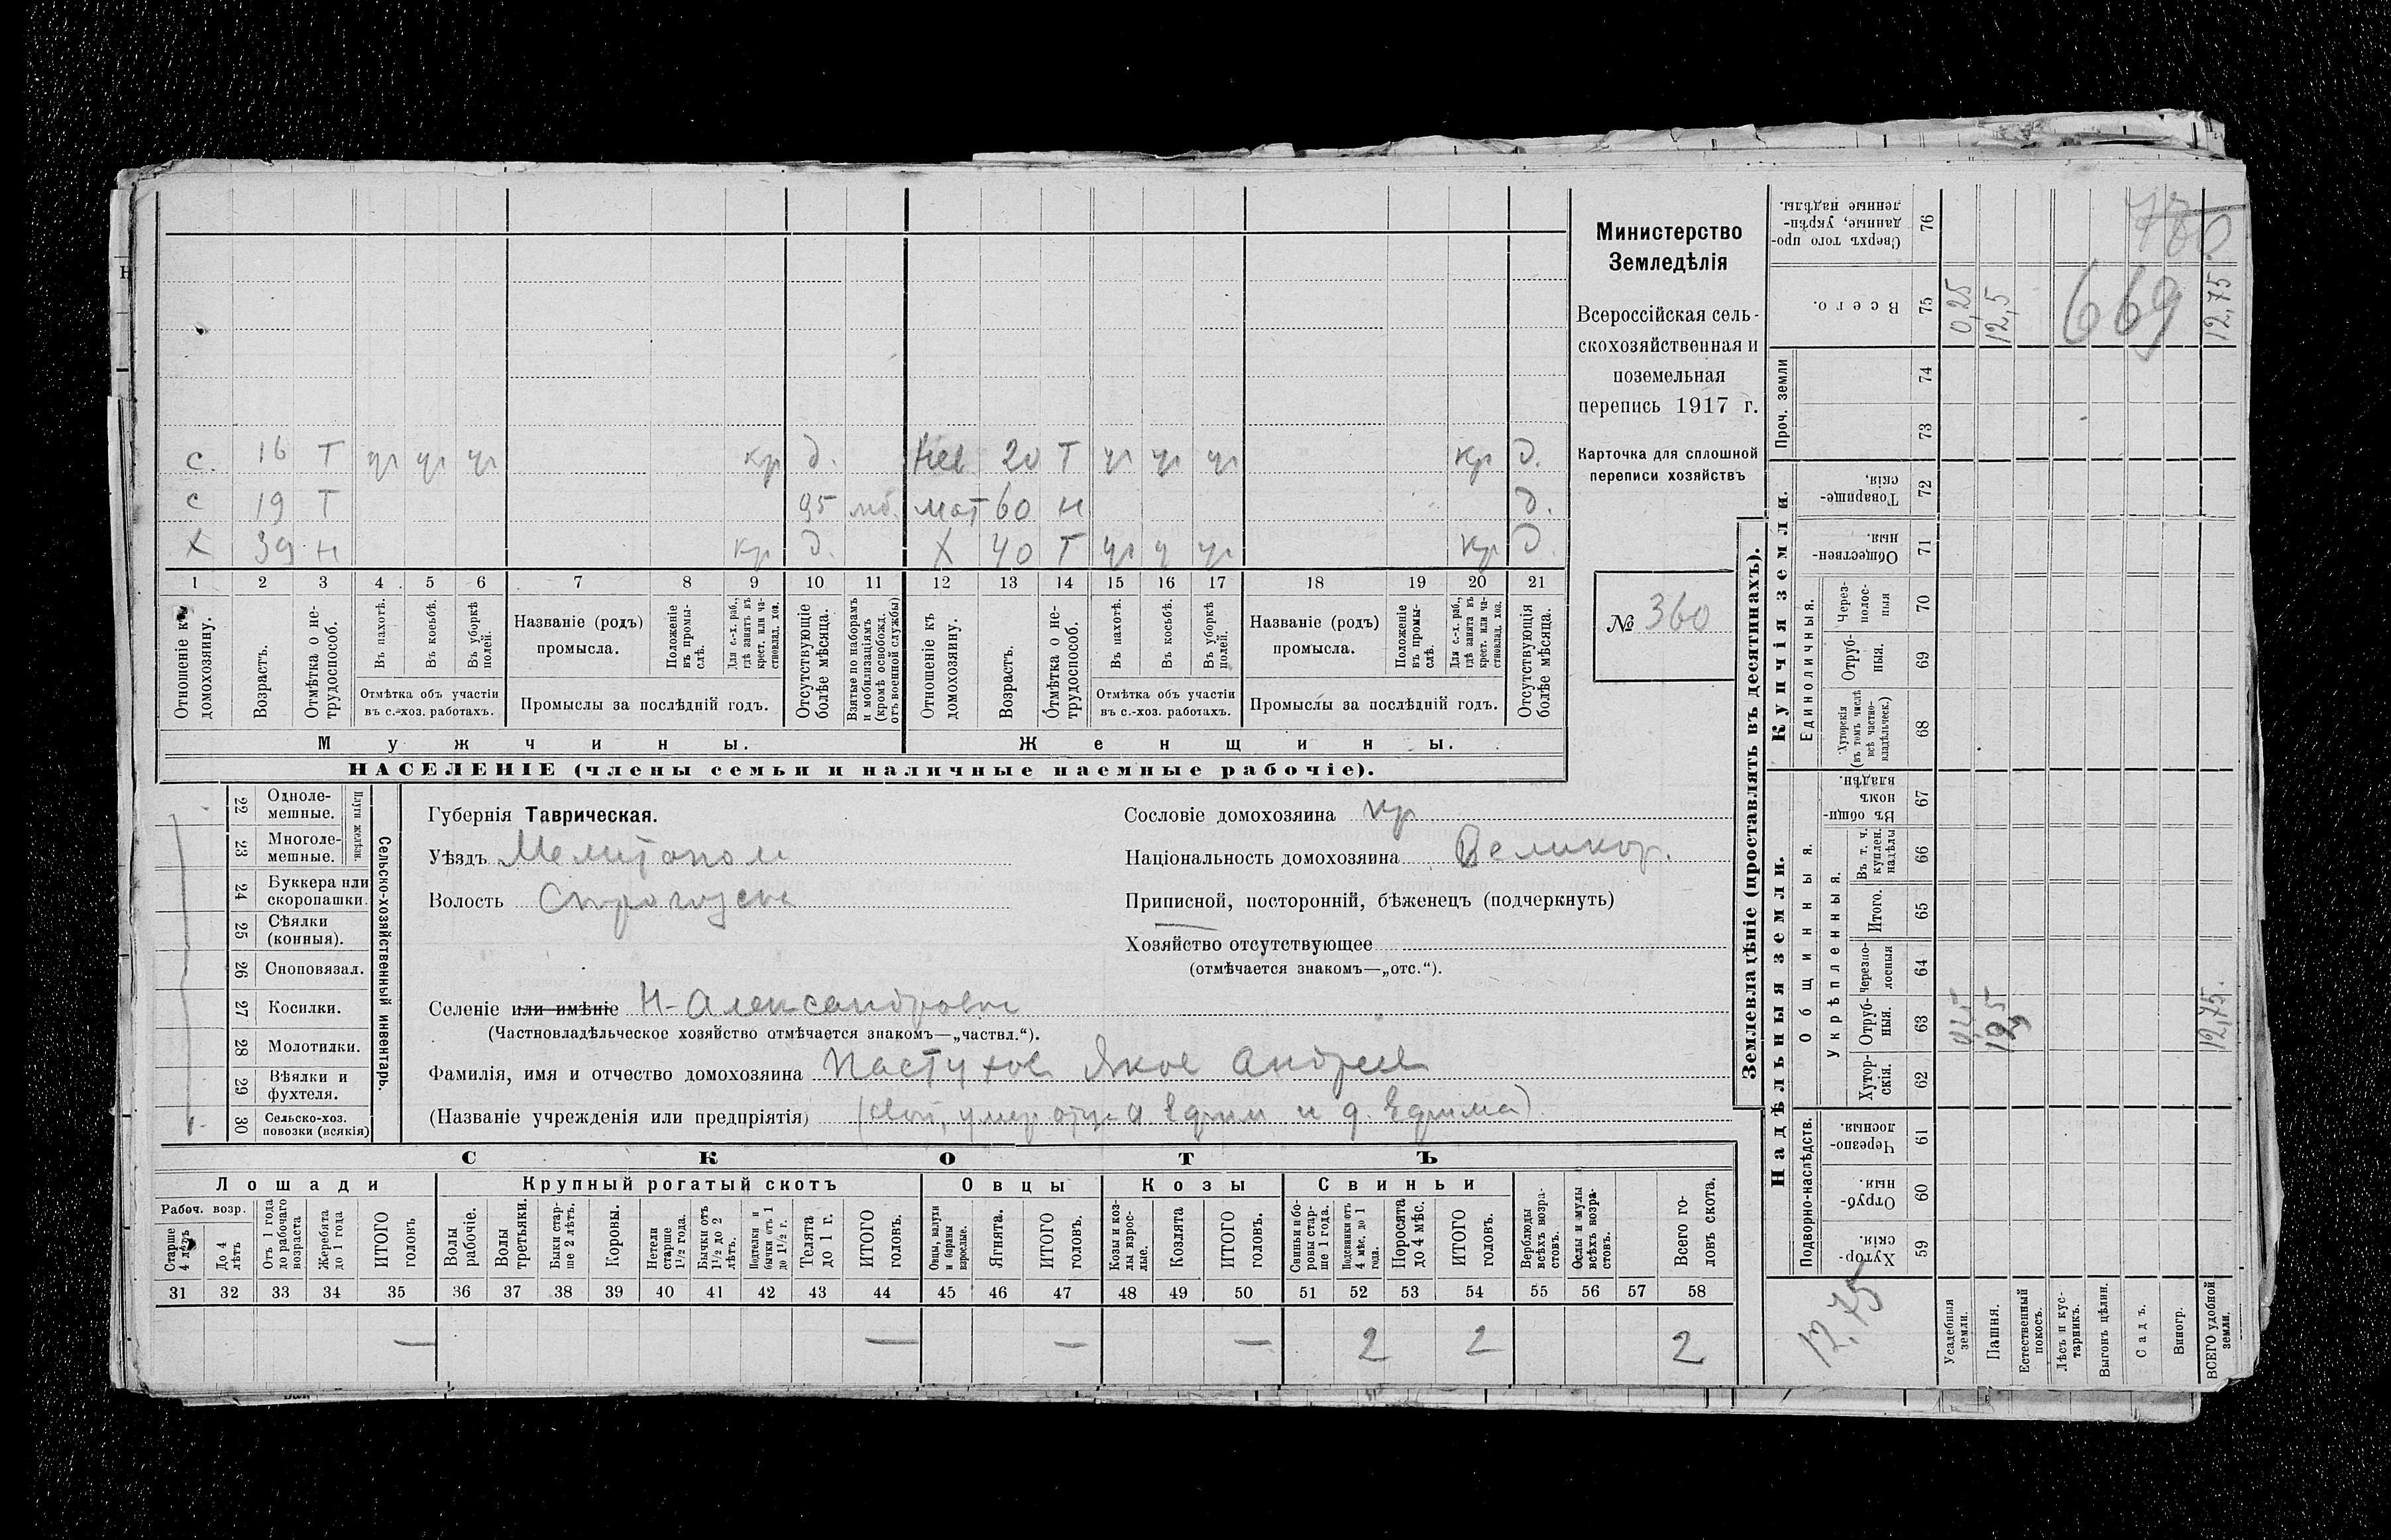 с. 16 Т уч уч уч кр д. Нев 20 Т уч уч уч кр д.
с 19 Т 95 мб. мат 60 н д.
Х 39 н кр д. Х 40 Т уч у уч кр д.
1 2 3 4 5 6 7 8 9 10 11 12 13 14 15 16 17 18 19 20 21
Отношеніе къ домохозяину.
Возрастъ.
Отмѣтка о нетрудоспособ.
Въ пахотѣ.
Въ косьбѣ.
Въ уборкѣ полей.
Отмѣтка объ участіи
въ с.-хоз. работахъ.
Названіе (родъ)
промысла.
Положеніе въ промыслѣ.
Для с.-х. раб., гдѣ занятъ въ крест. или частновлад. хоз.
Промыслы за послѣдній годъ.
Отсутствующіе болѣе мѣсяца.
Взятые по наборамъ и мобилизаціямъ (кромѣ освобожд. отъ военной службы)
Отношеніе къ домохозяину.
Возрастъ.
Отмѣтка о нетрудоспособ.
Въ пахотѣ.
Въ косьбѣ.
Въ уборкѣ полей.
Отмѣтка объ участіи
въ с.-хоз. работахъ.
Названіе (родъ)
промысла.
Положеніе въ промыслѣ.
Для с.-х. раб., гдѣ занята въ крест. или частновлад. хоз.
Промыслы за послѣдній годъ.
Отсутствующія болѣе мѣсяца.
Мужчины. Женщины.
НАСЕЛЕНІЕ (члены семьи и наличные наемные рабочіе).
Министерство
Земледѣлія
Всероссійская сель-
скохозяйственная и
поземельная
перепись 1917 г.
Карточка для сплошной
переписи хозяйствъ
№ 360
Сельско-хозяйственный инвентарь.
Плуги желѣзн.
22 Одноле-
мешные.
23 Многоле-
мешные.
24 Буккера или
скоропашки.
25 Сѣялки
(конныя).
26 Сноповязал.
27 Косилки.
28 Молотилки.
29 Вѣялки и
фухтеля.
30 Сельско-хоз.
повозки (всякія)
Губернія Таврическая.
Уѣздъ Мелитополь
Волость
Селеніе или имѣніе Н-Александровка
(Частновладѣльческое хозяйство отмѣчается знакомъ—„частвл.“).
Фамилія, имя и отчество домохозяина Пастухов Яков Андреев
(Названіе учрежденія или предпріятія)
Сословіе домохозяина кр
Національность домохозяина Великор.
Приписной, посторонній, бѣженецъ (подчеркнуть)
Хозяйство отсутствующее
(отмѣчается знакомъ—„отс.“).
СКОТЪ
Лошади Крупный рогатый скотъ Овцы Козы Свиньи
Рабоч. возр.
Старше 4 лѣтъ
До 4 лѣтъ
Отъ 1 года до рабочаго возраста
Жеребята до 1 года
ИТОГО головъ
Волы рабочіе.
Волы третьяки.
Быки старше 2 лѣтъ.
Коровы.
Нетели старше 1½ года.
Бычки отъ 1½ до 2 лѣтъ.
Подтелки и бычки отъ 1 до 1½ г.
Телята до 1 г.
ИТОГО головъ.
Овцы, валухи и бараны взрослые.
Ягнята.
ИТОГО головъ.
Козы и козлы взрослые.
Козлята
ИТОГО головъ.
Свиньи и боровы старше 1 года.
Подсвинки отъ 4 мѣс. до 1 года.
Поросята до 4 мѣс.
ИТОГО головъ.
Верблюды всѣхъ возрастовъ.
Ослы и мулы всѣхъ возрастовъ.
Всего головъ скота.
31 32 33 34 35 36 37 38 39 40 41 42 43 44 45 46 47 48 49 50 51 52 53 54 55 56 57 58
— — — — 2 2 2
Землевладѣніе (проставлять въ десятинахъ).
Надѣльныя земли. Купчія земли.
Подворно-наслѣдств.
Общинныя.
Укрѣпленныя.
Единоличныя.
Проч. земли
Хуторскія. 59
Отрубныя. 60
Черезполосныя. 61
Хуторскія. 62
Отрубныя. 63
Черезполосныя 64
Итого. 65
Въ т. ч. куплен. надѣлы 66
Въ общинномъ владѣн. 67
Хуторскія (въ томъ числѣ всѣ частновладѣльческ.) 68
Отрубныя. 69
Черезполосныя 70
Общественныя. 71
Товарищескія. 72
73
74
Всего. 75
Сверхъ того проданные, укрѣпленные надѣлы. 76
12,75
Усадебныя земли. 0,25
Пашня. 12,5
Естественный покосъ.
Лѣсъ и кустарникъ.
Выгонъ цѣлин.
Садъ.
Виногр.
ВСЕГО удобной земли. 12,75. 12,75
669